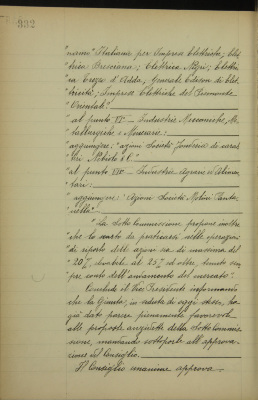 332
"nome" Italiana per Imprese Elettriche; Elet
"trica Bresciana; Elettrica Alpi; Elettri
"ca Trezzo d'Adda, Generale Edison di Elet
"tricità; Imprese Elettriche del Piemonte
"Orientale".
"al punto IX - Industrie Meccaniche, Me
"tallurgiche e Minerarie:
"aggiungere: "azioni Società
"al punto - Industrie Agrarie ed Alimen
"tari:
"aggiungere: "Azioni Società Molini
"La Sotto Commissione propone inoltre
"che lo scarto da praticarsi nelle operazioni
"di riporto delle azioni sia di una norma del
"20% elevabile al 25% ed oltre, tenuto sem
"pre conto dell'andamento del mercato."
Conclude il Vice Presidente informando
che la Giunta, in seduta di oggi stesso, ha
già dato parere pienamente favorevole
alle proposte anzidette della Sotto Commis
sione, mandando sottoporle all'approva
zione del Consiglio.
Il Consiglio unanime approva.